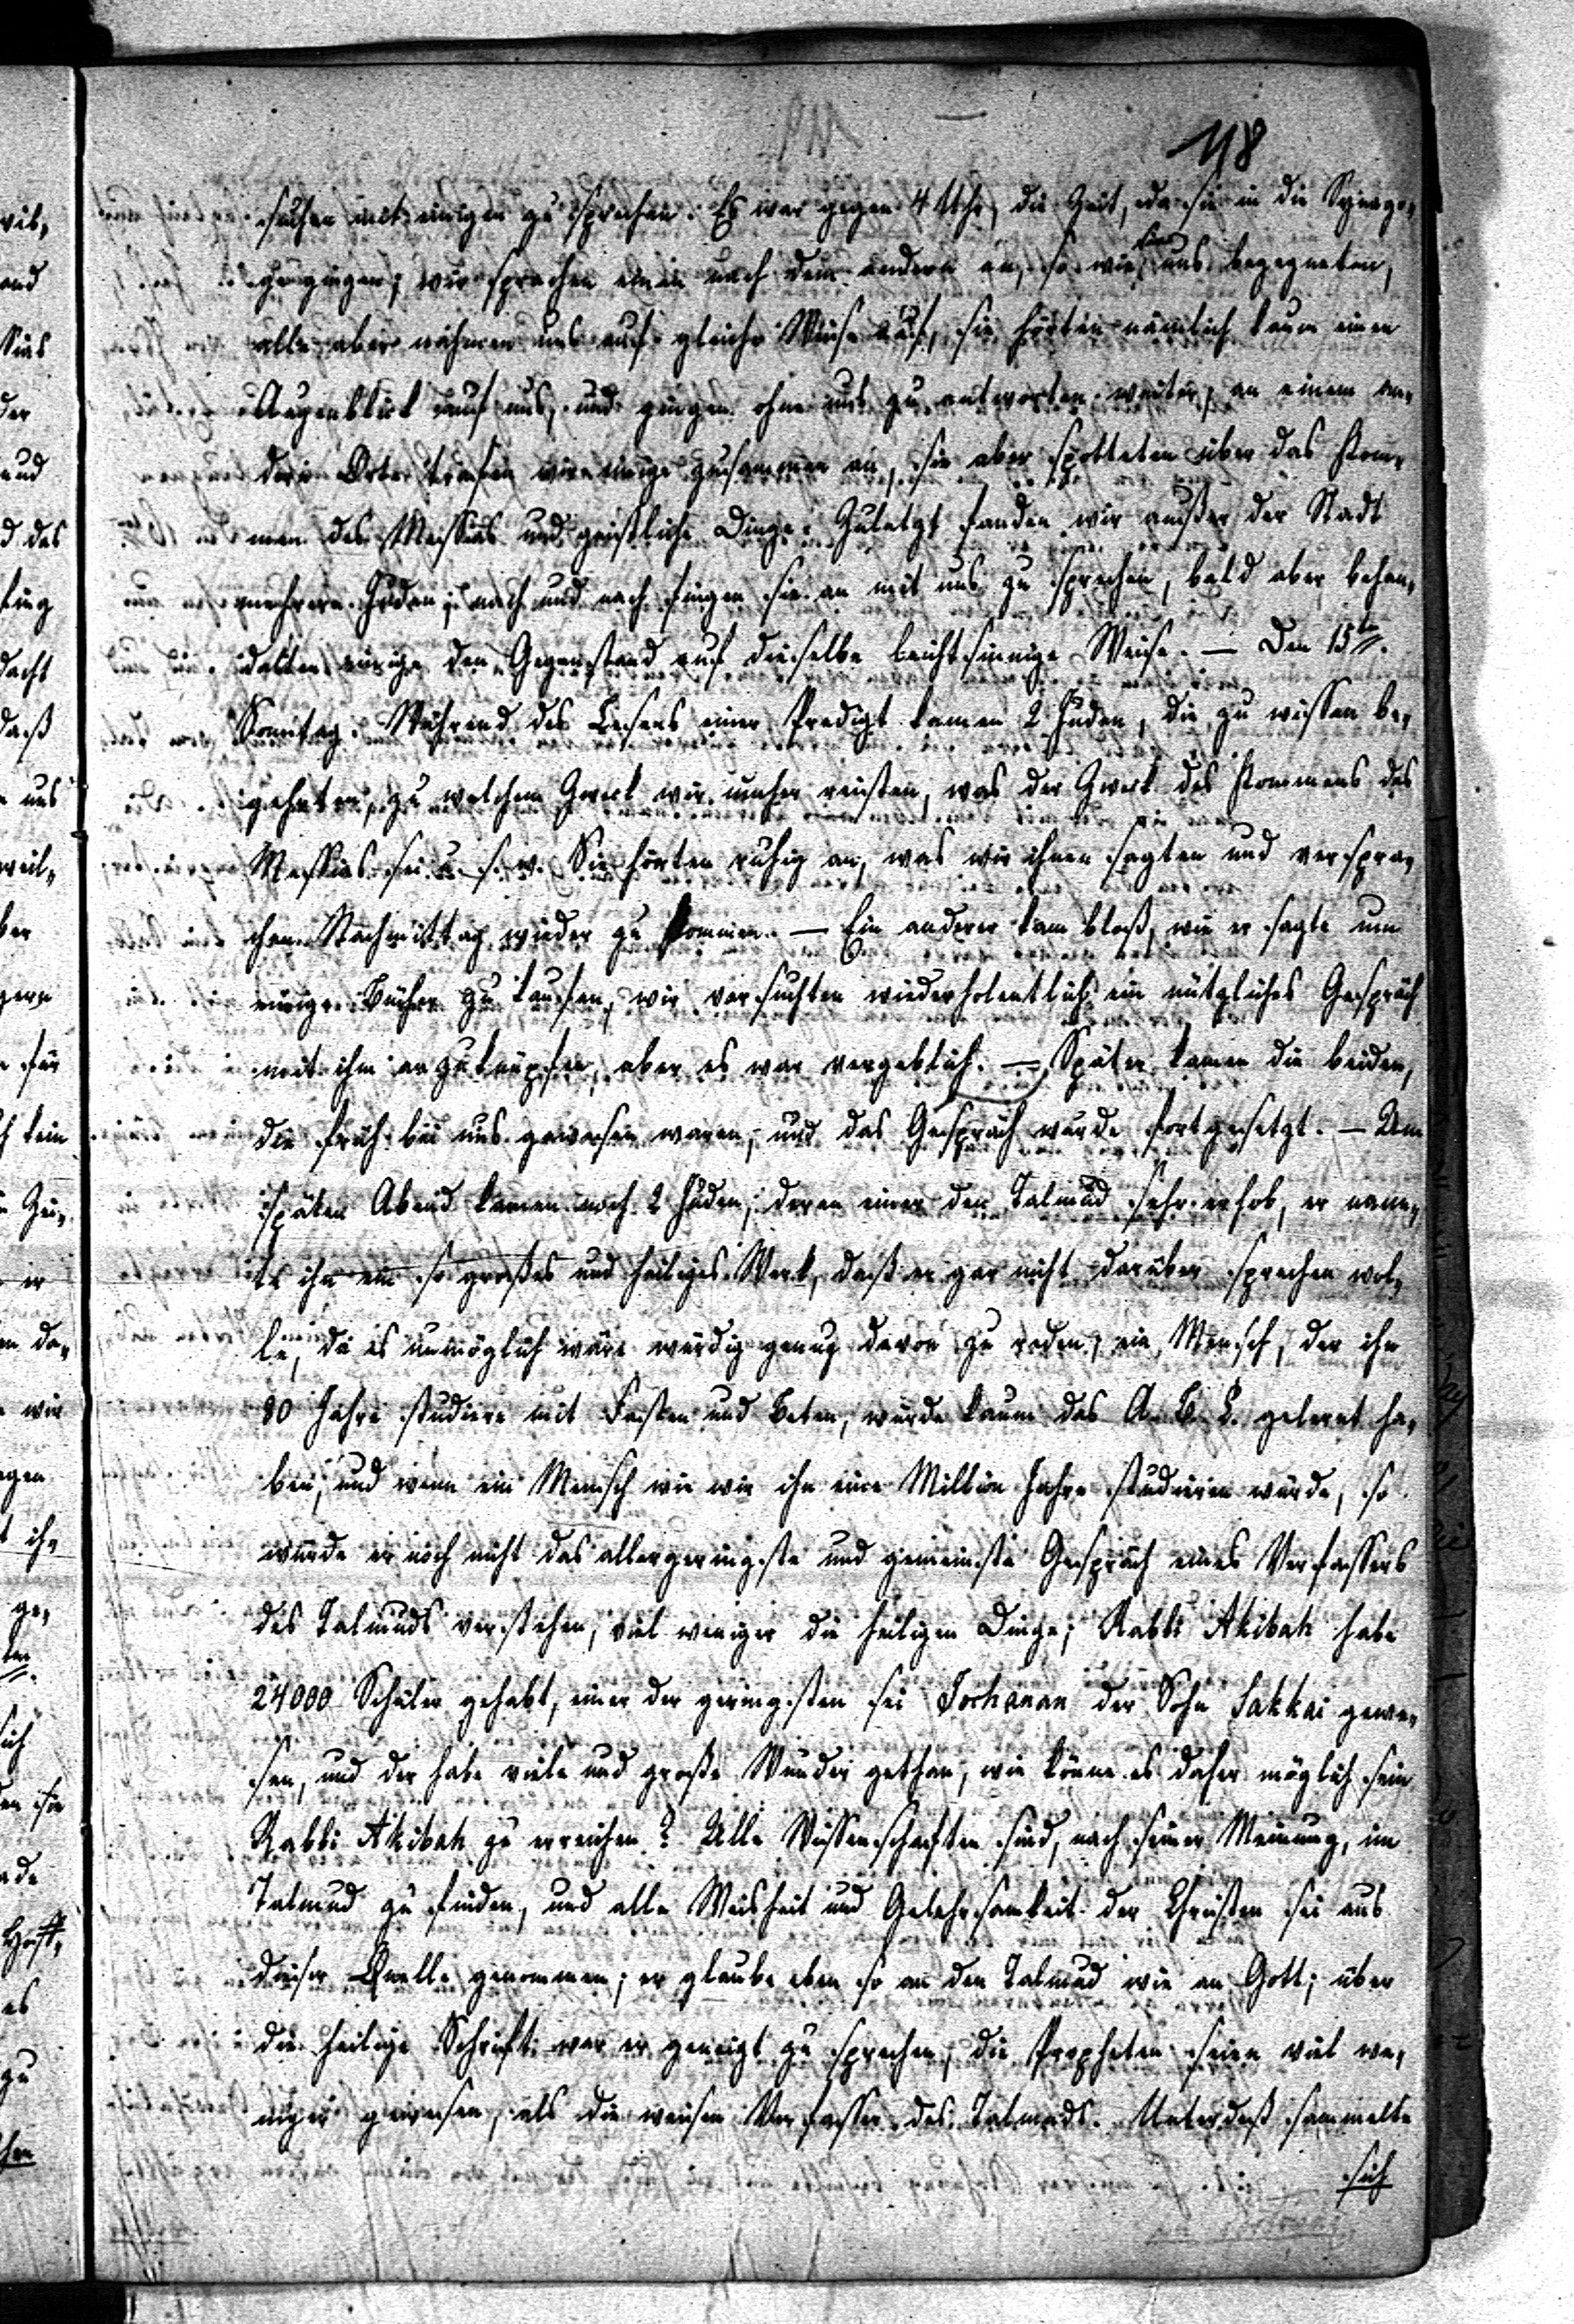 118
suchen mit einigen zu sprechen. Es war gegen 4 Uhr, die Zeit, da sie in die Synago-
ge gingen; wir sprachen einen nach dem andern an, so wie sie uns begegneten,
alle aber nahmen uns auf gleiche Weise auf, sie hörten nämlich kaum einen
Augenblick auf uns, und gingen ohne uns zu antworten weiter, an einem an-
dern Orte trafen wir einige zusammen an, sie aber spotteten über das Kom-
men des Messias und geistliche Dinge. Zuletzt fanden wir außer der Stadt
mehrere Juden, nach und nach fingen sie an mit uns zu sprechen, bald aber behan-
delten einige den Gegenstand auf dieselbe leichtsinnige Weise. — Den 15ten.
Sonntag. Während des Lesens einer Predigt kamen 2 Juden, die zu wissen be-
gehrten, zu welchem Zweck wir umher reisten, was der Zweck des Kommens des
Messias sei u. s. w. Sie hörten ruhig an, was wir ihnen sagten und verspra-
chen Nachmittag wieder zu kommen. — Ein anderer kam bloß, wie er sagte um
einige Bücher zu kaufen, wir versuchten wiederholentlich ein nützliches Gespräch
mit ihm anzuknüpfen, aber es war vergeblich. — Später kamen die beiden,
die früh bei uns gewesen waren, und das Gespräch wurde fortgesetzt. — Am
späten Abend kamen noch 2 Juden, deren einer den Talmud sehr erhob, er nann-
te ihn ein so großes und heiliges Werk, daß er gar nicht darüber sprechen wol-
le, da es unmöglich wäre würdig genug davon zu reden, ein Mensch, der ihn
80 Jahre studiere mit Fasten und Beten, würde kaum das A. B. C. gelernt ha-
ben, und wenn ein Mensch wie wir ihn eine Million Jahre studieren würde, so
würde er noch nicht das allergeringste und gemeinste Gespräch eines Verfassers
des Talmuds verstehen, viel weniger die heiligen Dinge; Rabbi Akibah habe
24000 Schüler gehabt, einer der geringsten sei Jochanan der Sohn Sakkai gewe-
sen, und der habe viele und große Wunder gethan, wie könne es daher möglich sein
Rabbi Akibah zu erreichen? Alle Wissenschaften sind, nach seiner Meinung, im
Talmud zu finden, und alle Weisheit und Gelehrsamkeit der Christen sei aus
dieser Quelle genommen; er glaube eben so an den Talmud wie an Gott; über
die heilige Schrift war er geneigt zu sprechen, die Propheten seien viel we-
niger gewesen, als die weisen Verfasser des Talmuds. Unterdeß sammelte
sich